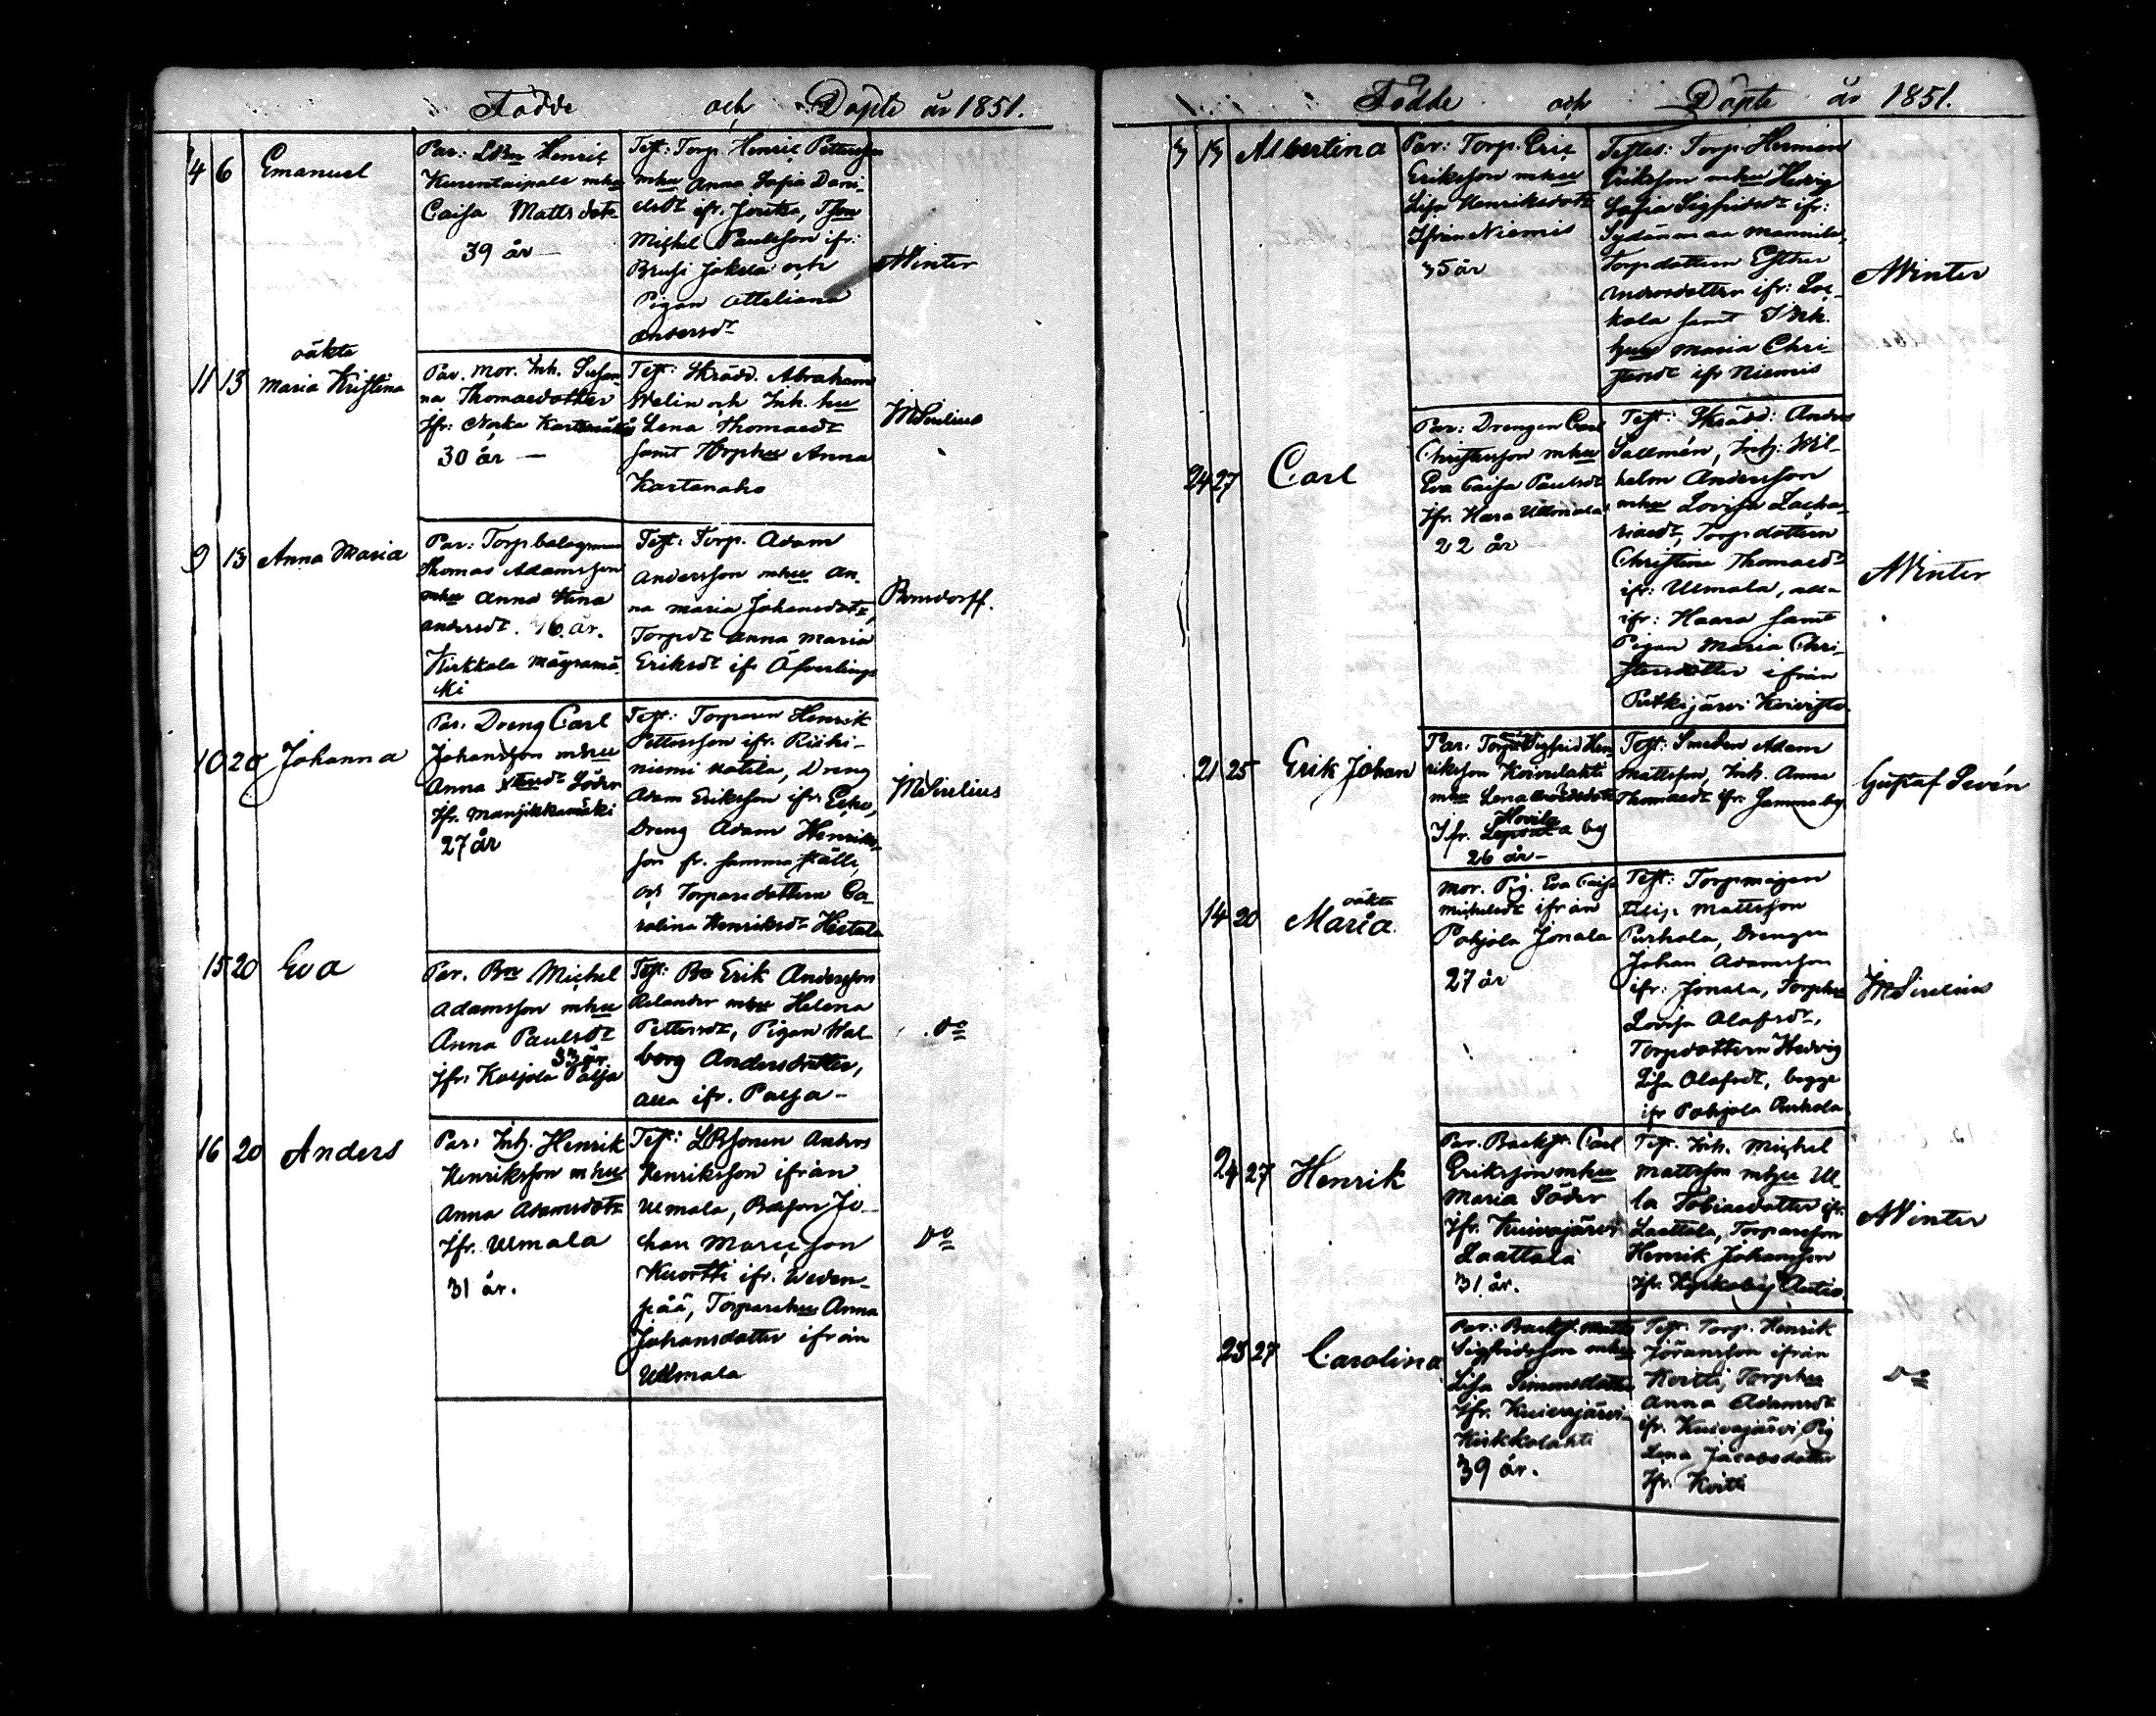 Födde och Döpte år 1851.
4 6 Emanuel
Par: LBm Henric
Kurentaipale mhu
Caisa Mattsdotr
39 år —
Test: Torp. Henric Pettersson
mhu Anna Sofia Dani-
elsdr ifr. Joutsa, Tson
Michel Paulsson ifr:
Brusi Jakela och
Pigan Otteliana
Andersdr
AWinter
11 13 oäkta
Maria Kristina
Par. Mor. Inh. Susan-
na Thomasdotter
Ifr: Norka
30 år —
Test: Skrädd. Abraham
Welin och Inh. hu
Lena Thomasdr
samt Torphu Anna
Kartanaho
MSirelius
9 13 Anna Maria
Par: Torp
Thomas Adamsson
mhu Anna Stina
Andersdr. 46 år.
Kirkkala Mägramä-
ki
Test: Torp. Adam
Andersson mhu An-
na Maria Johansdotr,
Torpdr Anna Maria
Eriksdr ifr Öfverlings
Bonsdorff.
10 20 Johanna
Par. Dreng Carl
Johansson mhu
Anna Söder
Ifr. Mansikkamäki
27 år
Test: Torparen Henrik
Pettersson ifr. Riihi-
niemi Uotila, Dreng
Adam Eriksson ifr Echo,
Dreng Adam Henriks-
son fr. samma ställe,
och Torparedottern Ca-
rolina Henriksdr Hietala
MSirelius
15 20 Eva
Par. Bm Michel
Adamsson mhu
Anna Paulsdr
33 år
Ifr: Kaljola Palja
Test: Bo Erik Andersson
Relander mhu Helena
Pettersdr, Pigan Wal-
borg Andersdotter,
alla ifr. Palja —
Do
16 20 Anders
Par: Inh. Henrik
Henriksson mhu
Anna Adamsdotr
Ifr. Ulmala
31 år.
Test: LBsonen Anders
Henriksson ifrån
Ulmala, Bdeson Jo-
han Maricson
Kuortti ifr. Weden-
pää, Torparehu Anna
Johansdotter ifrån
Ullmala
Do
Födde och Döpte år 1851.
3 13 Albertina
Par: Torp. Eric
Eriksson mhu
Lisa Henriksdotr
Ifrån Niemis
35 år
Testes: Torp. Herman
Eriksson mhu Hedvig
Sofia Sigfridsdr ifr:
Sydänmaa Mannila,
Torpdottern Esther
Andersdotter ifr: Loc-
kola samt Inh.
hu Maria Chri-
stersdr ifr Niemis
AWinter
24 27 Carl
Par: Drengen Carl
Christersson mhu
Eva Caisa Paulsdr
Ifr. Hara Ullmala
22 år
Test: Skrädd: Anders
Sallmén, Inh: Wil-
helm Andersson
mhu Lovisa Zacha-
riasdr, Torpdottern
Christina Thomasdr
ifr: Ulmala, alla
ifr: Haara samt
Pigan Maria Chri-
stersdotter ifrån
Putkijärvi Koivisto
AWinter
21 25 Erik Johan
Par: Torp Sigfrid Hen-
riksson Koivulahti
mhu Lena
Hovila
Ifr. by
26 år —
Test: Smeden Adam
Mattsson, Inh. Anna
Thomasdr ifr. samma by
Gustaf Levén
14 20 oäkta
Maria
Mor. Pig. Eva Caisa
Michelsdr ifrån
Pohjola Jonala
27 år
Test: Torpmågen
Filip. Mattsson
Purhala, Drengen
Johan Adamsson
ifr: Jonala, Torphu
Lovisa Olofsdr,
Torpdottern Hedvig
Lisa Olofsdr, begge
ifr Pohjola Purhala
MSirelius
24 27 Henrik
Par. Backst. Carl
Eriksson mhu
Maria Söder
Ifr. Kuivajärvi
Laattala
31 år.
Test. Inh. Michel
Mattsson mhu Ul-
la Tobiasdotter ifr.
Laattala, Torpareson
Henrik Johansson
Ifr. Kyrkoby Autio
AWinter
23 27 Carolina
Par: Backst. Matts
Sigfridsson mhu
Lisa Simonsdotter
Ifr. Kuivajärvi
Kirkkolahti
39 år.
Test. Torp. Henrik
Jöransson ifrån
Koitti, Torphu
Anna Adamsdr
ifr. Kuivajärvi, Pig
Lena Jacobsdotter
Ifr. Koitti
Do